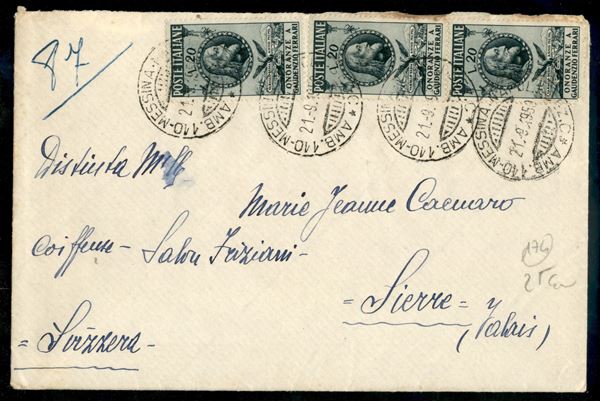 87
POSTE ITALIANE
L. 20
ONORANZE A
GAUDENZIO FERRARI
POSTE ITALIANE
L. 20
ONORANZE A
GAUDENZIO FERRARI
POSTE ITALIANE
L. 20
ONORANZE A
GAUDENZIO FERRARI
AMB. 110-MESSINA
21.9
AMB. 110-MESSINA
21.9
AMB. 110-MESSINA
21.9
AMB. 110-MESSINA
21.9.195
Distinta Mlle
Marie Jeanne Caenaro
Coiffeuse - Salon Friziani -
= Sierre =
(Valais)
= Svizzera =